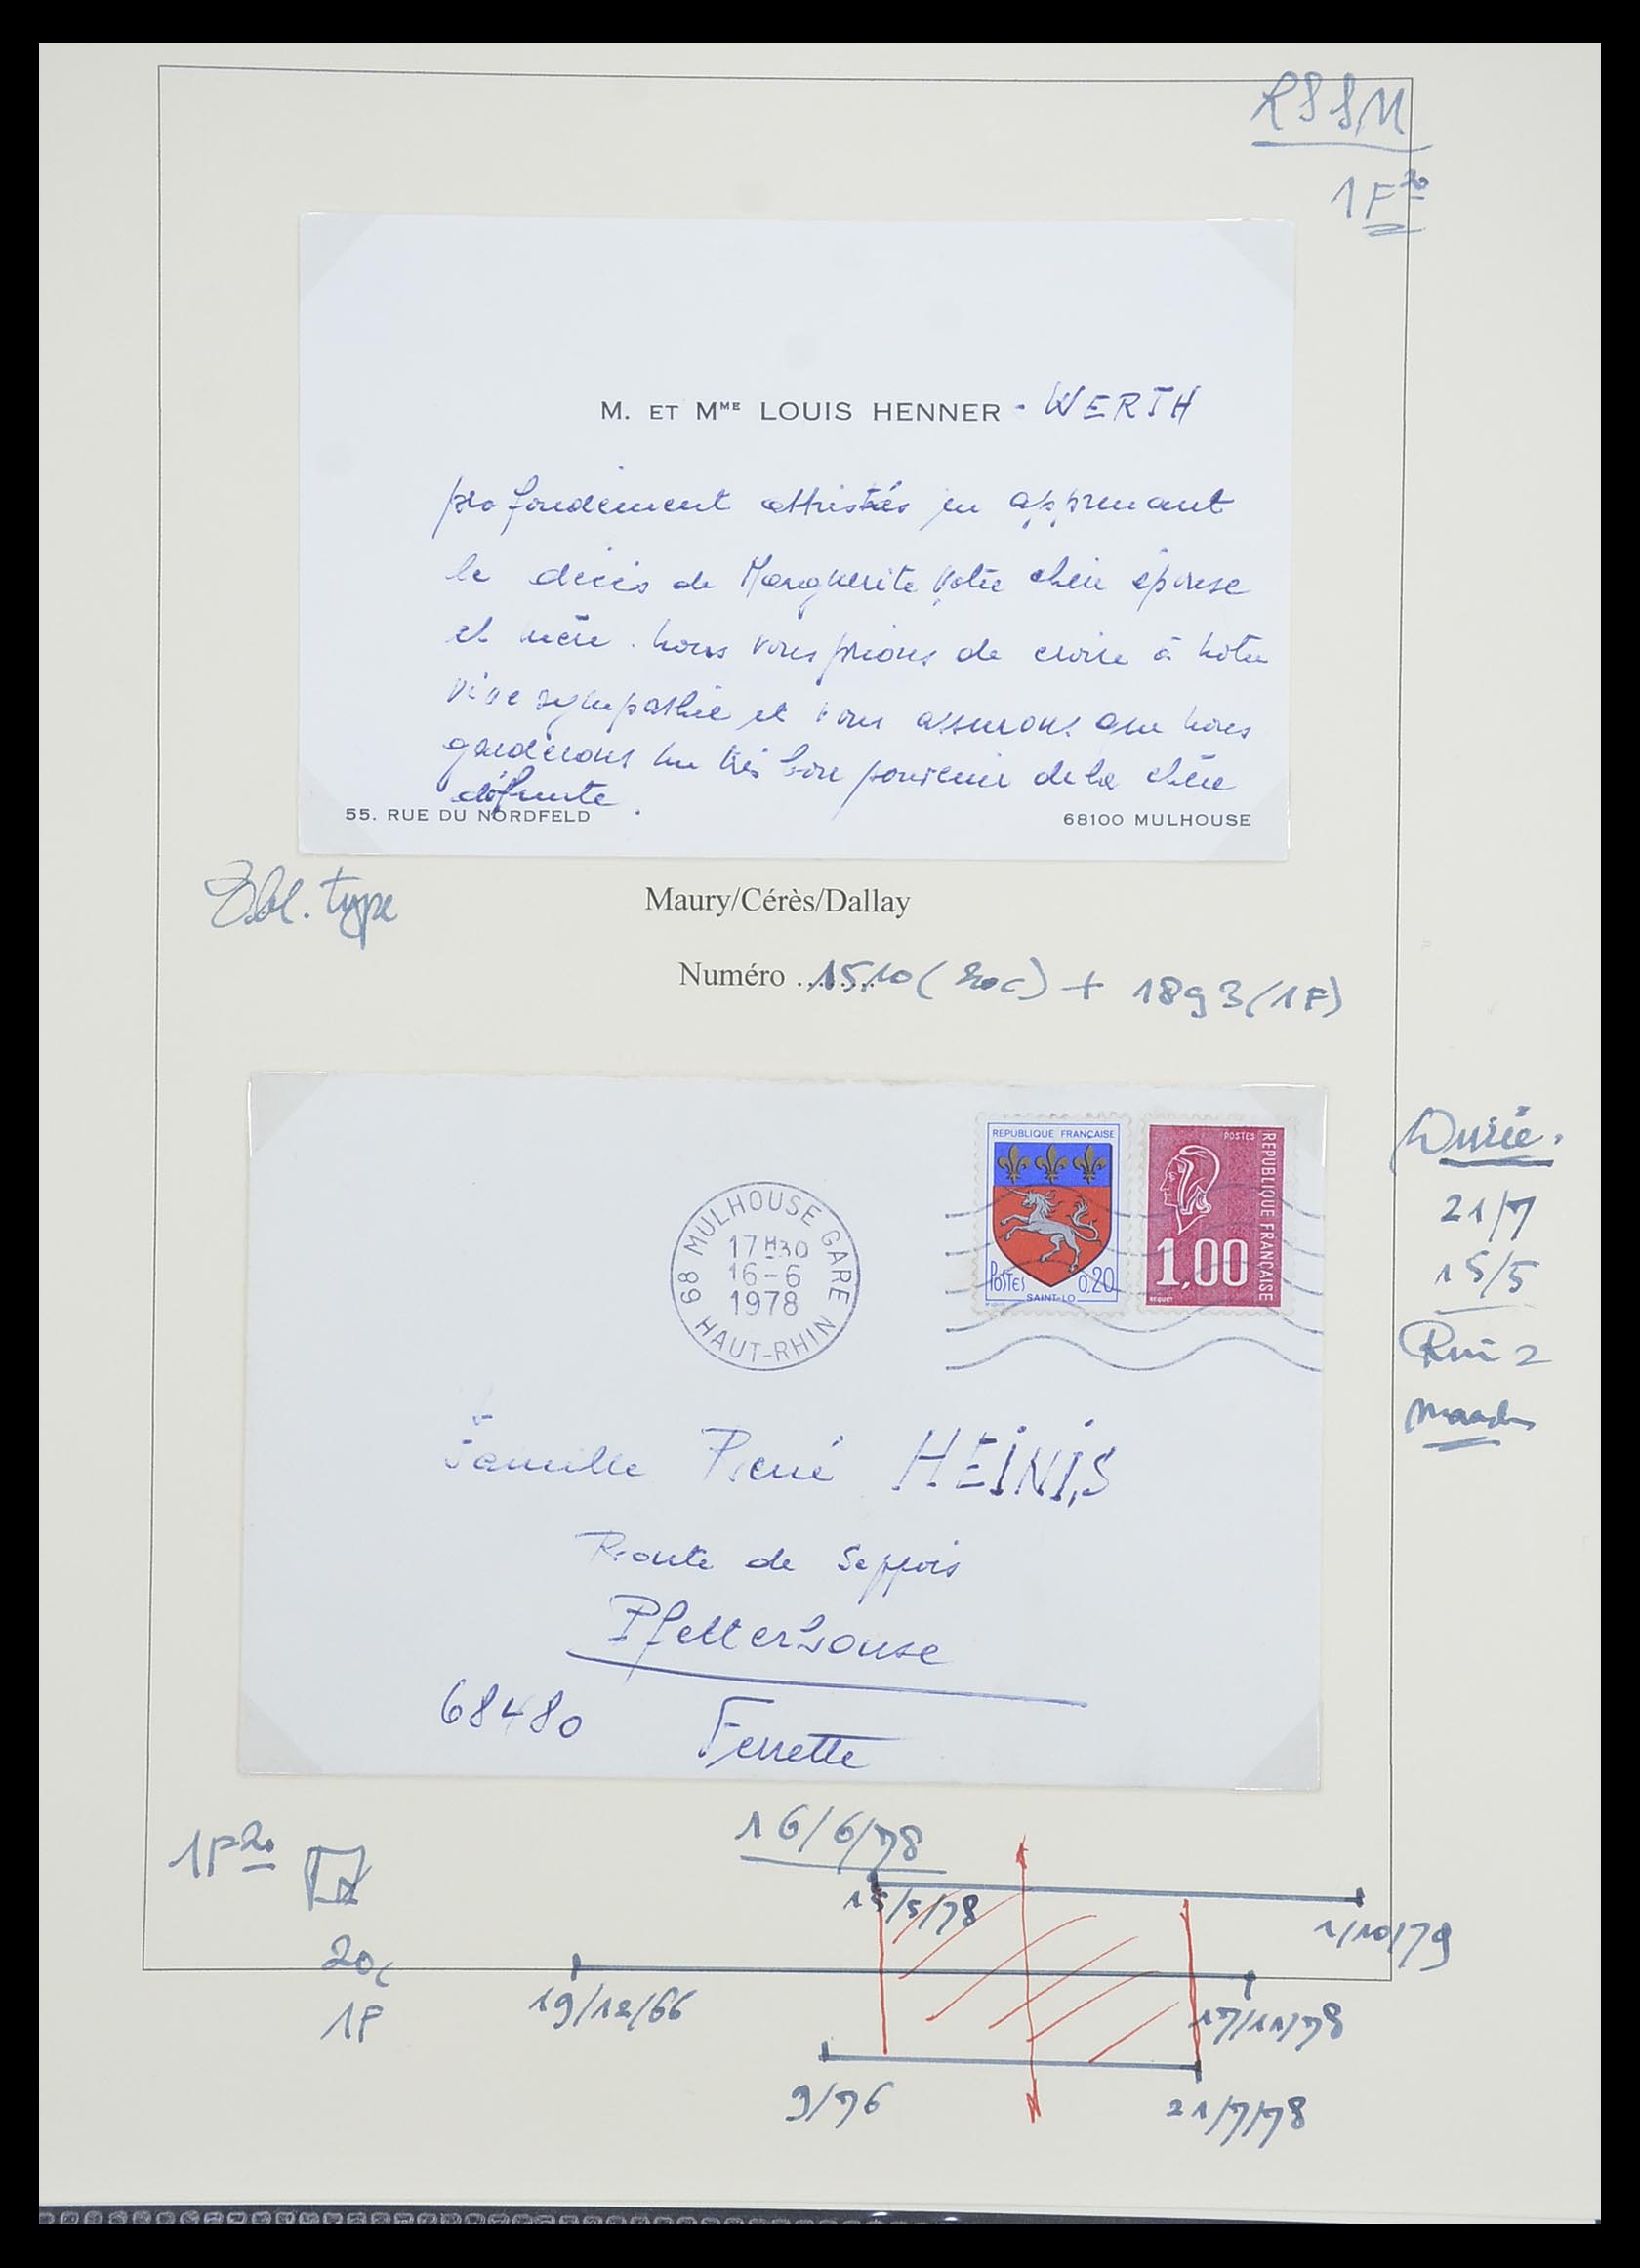 1F20
M. ET MME LOUIS HENNER - WERTH
profondément attristés en apprenant
le décès de Marguerite votre chère épouse
et mère. nous vous prions de croire à notre
vive sympathie et vous assurons que nous
garderons un très bon souvenir de la chère
défunte.
55. RUE DU NORDFELD
68100 MULHOUSE
Obl. type
Maury/Cérès/Dallay
Numéro ........1510 (20c) + 1893 (1F)
68 MULHOUSE GARE
17H30
16-6
1978
HAUT-RHIN
REPUBLIQUE FRANÇAISE
POSTES 0,20
SAINT-LO
POSTES
REPUBLIQUE FRANÇAISE
1,00
BEQUET
Durée.
21/7
15/5
Famille René HEINIS
Route de Seppois
Pfetterhouse
68480 Ferrette
1F20
16/6/78
15/5/78
1/10/79
20c
19/12/66
17/11/78
1F
9/76
21/7/78